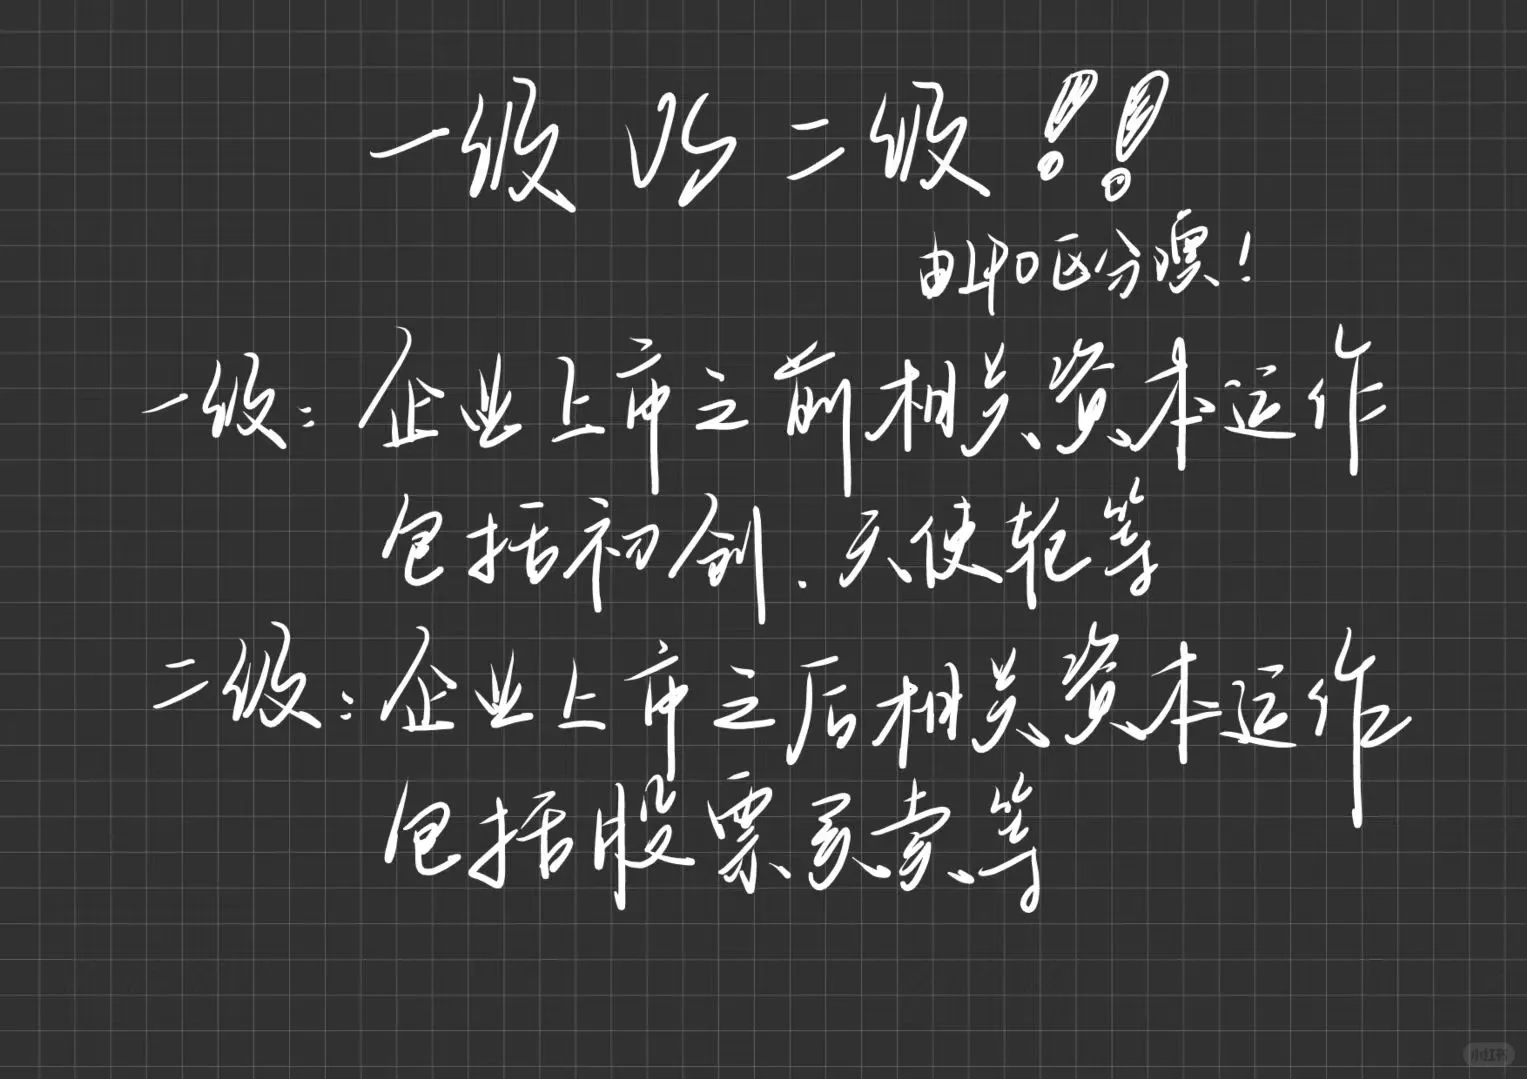 一级 VS 二级!!
由IPO区分噢!
一级:企业上市之前相关资本运作
包括初创、天使轮等
二级:企业上市之后相关资本运作
包括股票买卖等
小红书